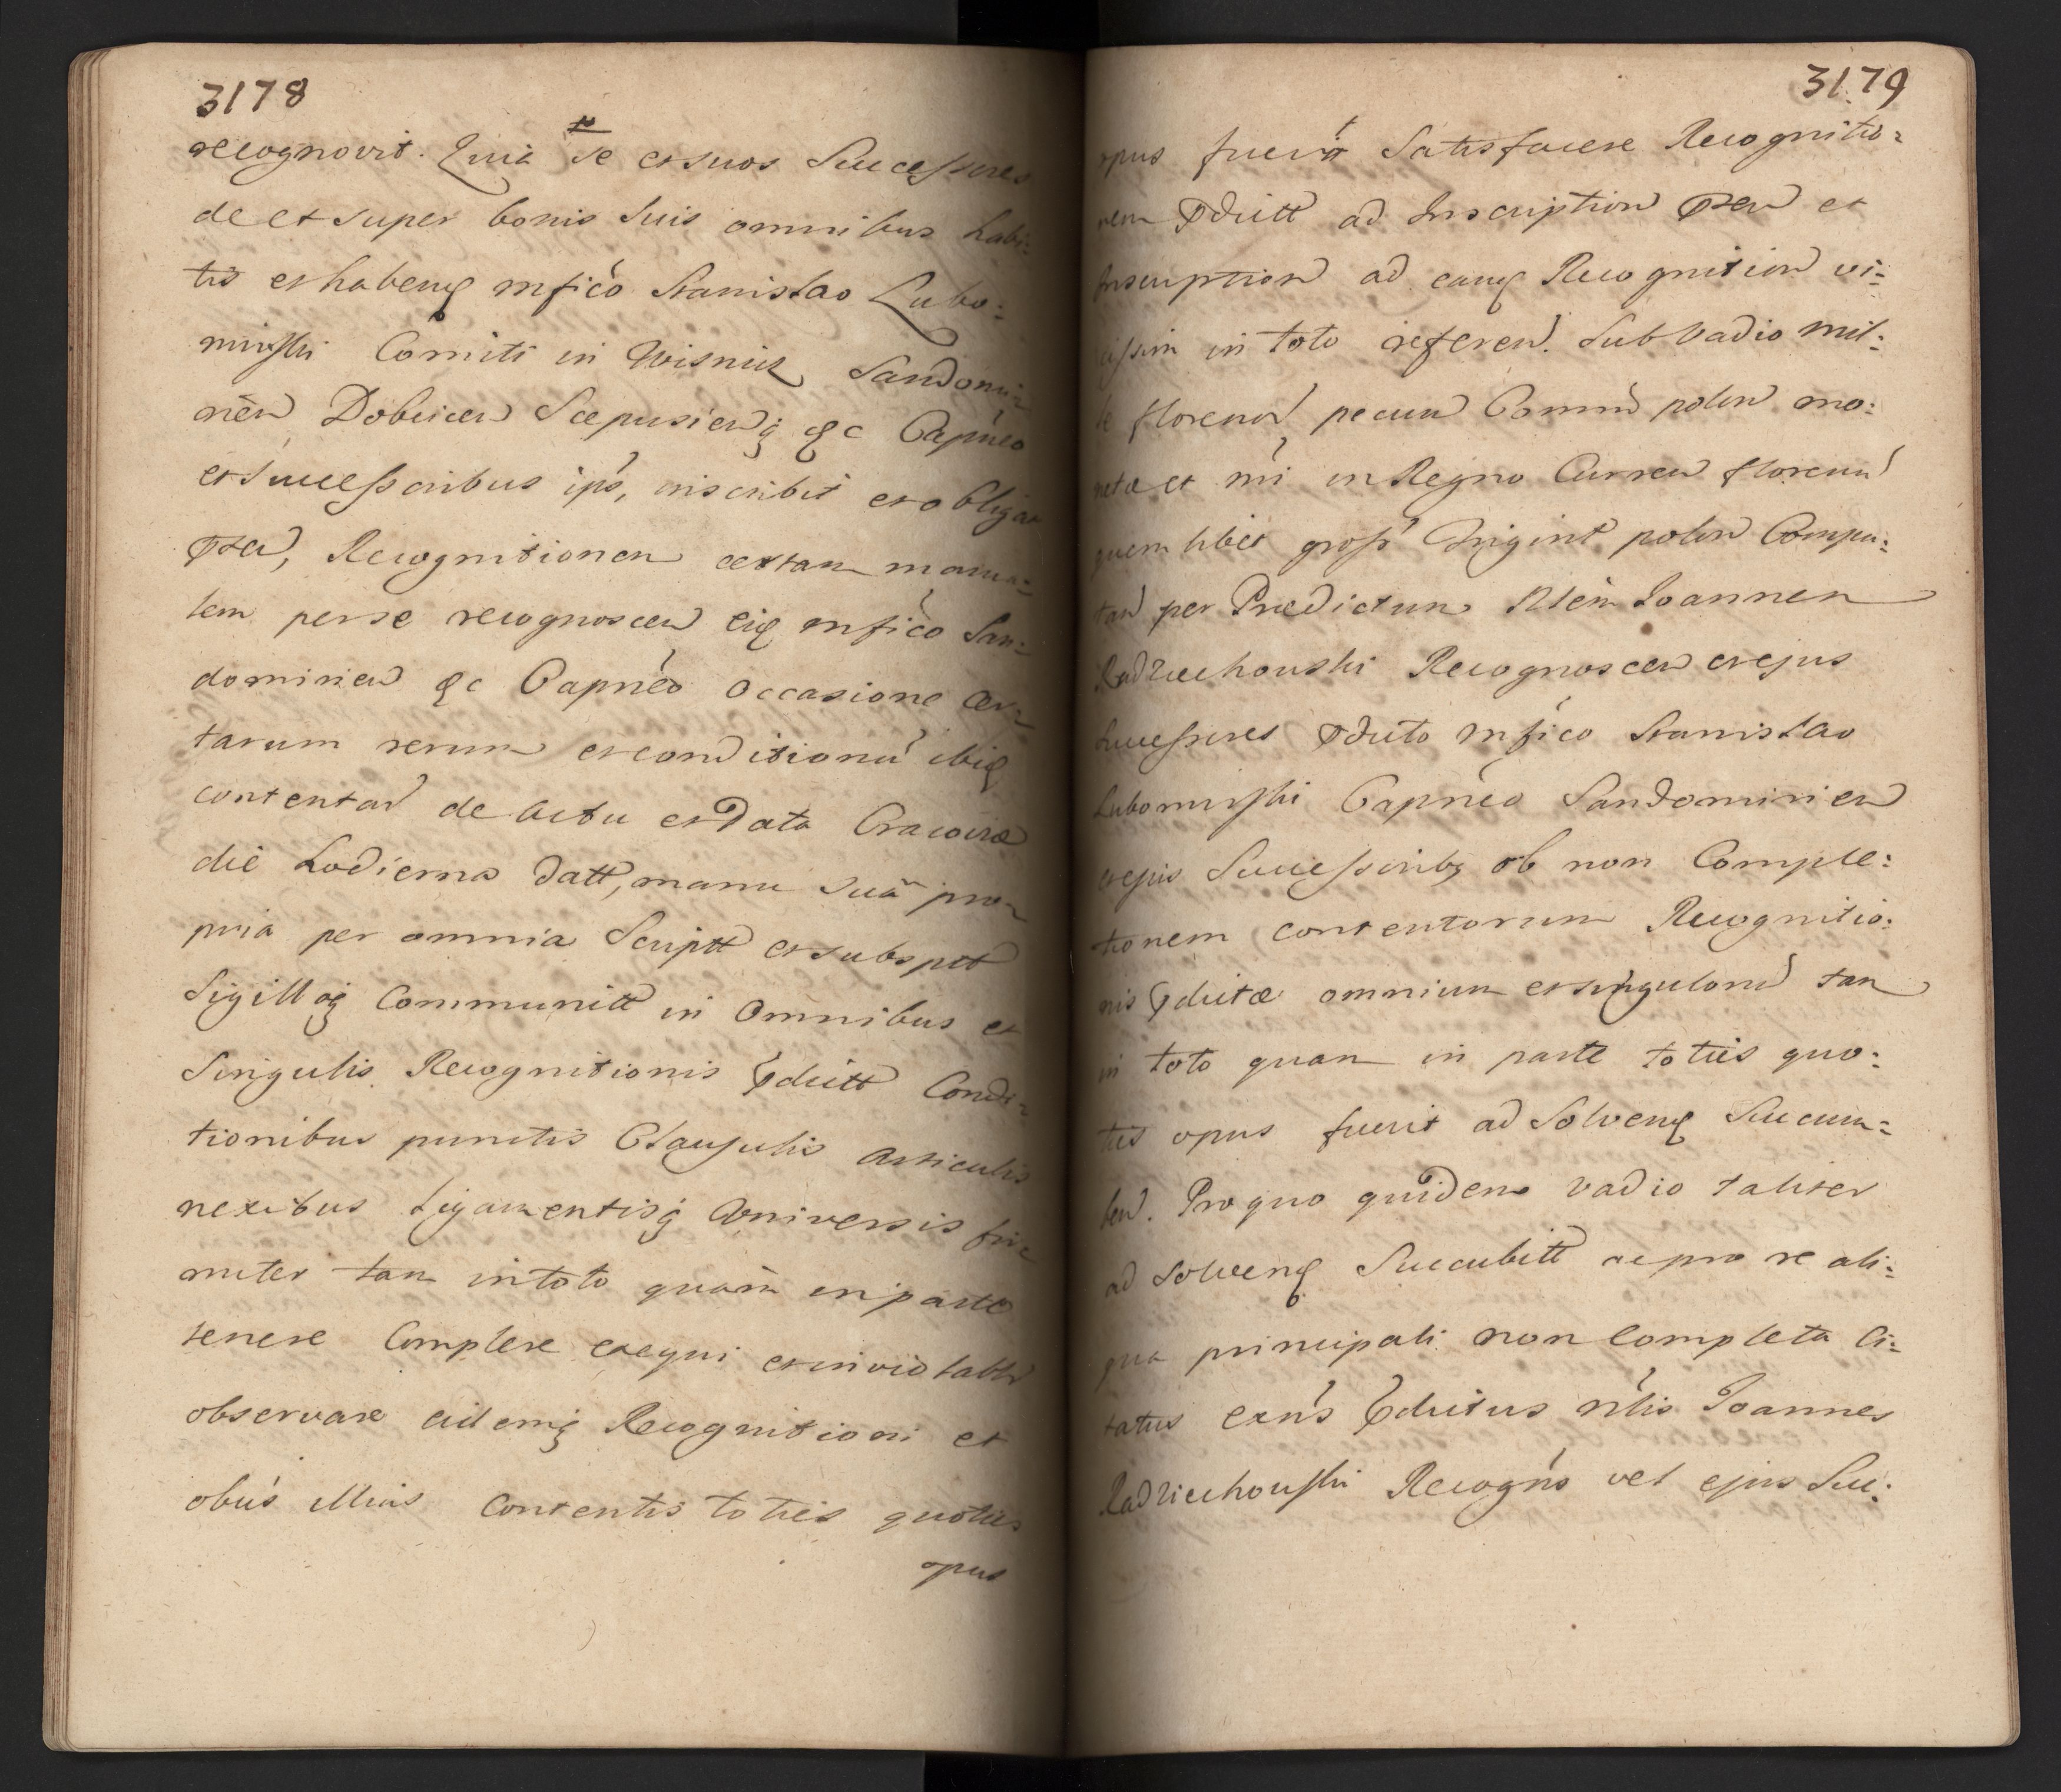 3178
recognovit. Quia se et suos Successores
de et super bonis suis omnibus habi:
tis et habenq mfico Stanislao Lubo:
mirski Comiti in Wisnicz Sandomi:
rien Dobcicen Scepusienq &c Capneo
et Successoribus ips, inscribit et obligat
pren, Recognitionem certam manua:
lem per se recognoscen eiq mfico San:
domirien &c Capneo occasione cer:
tarum rerum et conditionu ibiq
contentar de actu et Data Cracoviæ
die hodierna datt, manu suâ pro:
pria per omnia Scriptt et subsptt
Sigilloq Communitt in Omnibus et
Singulis Recognitionis pdictt Condi:
tionibus punctis Clausulis articulis
nexibus ligamentisq universis fir
miter tam in toto quam in parte
tenere Complere exequi et inviolablr
observare eidemq Recognitioni et
obus illius Contentis toties quoties
opus
3179
opus fuerit Satisfacere Recognitio:
nem pdictt ad Inscription pren et
Inscription ad eamq Recognition vi:
cissim in toto referen. Sub Vadio mil:
le florenor pecun Commun polon mo:
netæ et nri in Regno Curren florenu
quemlibet gross Trigint polon Compu:
tan per Prædictum Nlem Joannem
Radziechowski Recognoscen et ejus
Successores pdicto mfico Stanislao
Lubomirski Capneo Sandomirien
et ejus Successoribq ob non Comple:
tionem contentorum Recognitio:
nis pdictæ omnium et singulorum tam
in toto quam in parte toties quo:
ties opus fuerit ad Solvenq Succum:
ben. Pro quo quidem vadio taliter
ad solvenq Succubitt ac pro re ali:
qua principali non Completa Ci:
tatus exns pdictus nlis Joannes
Radziechowski Recogns vel ejus Suc: